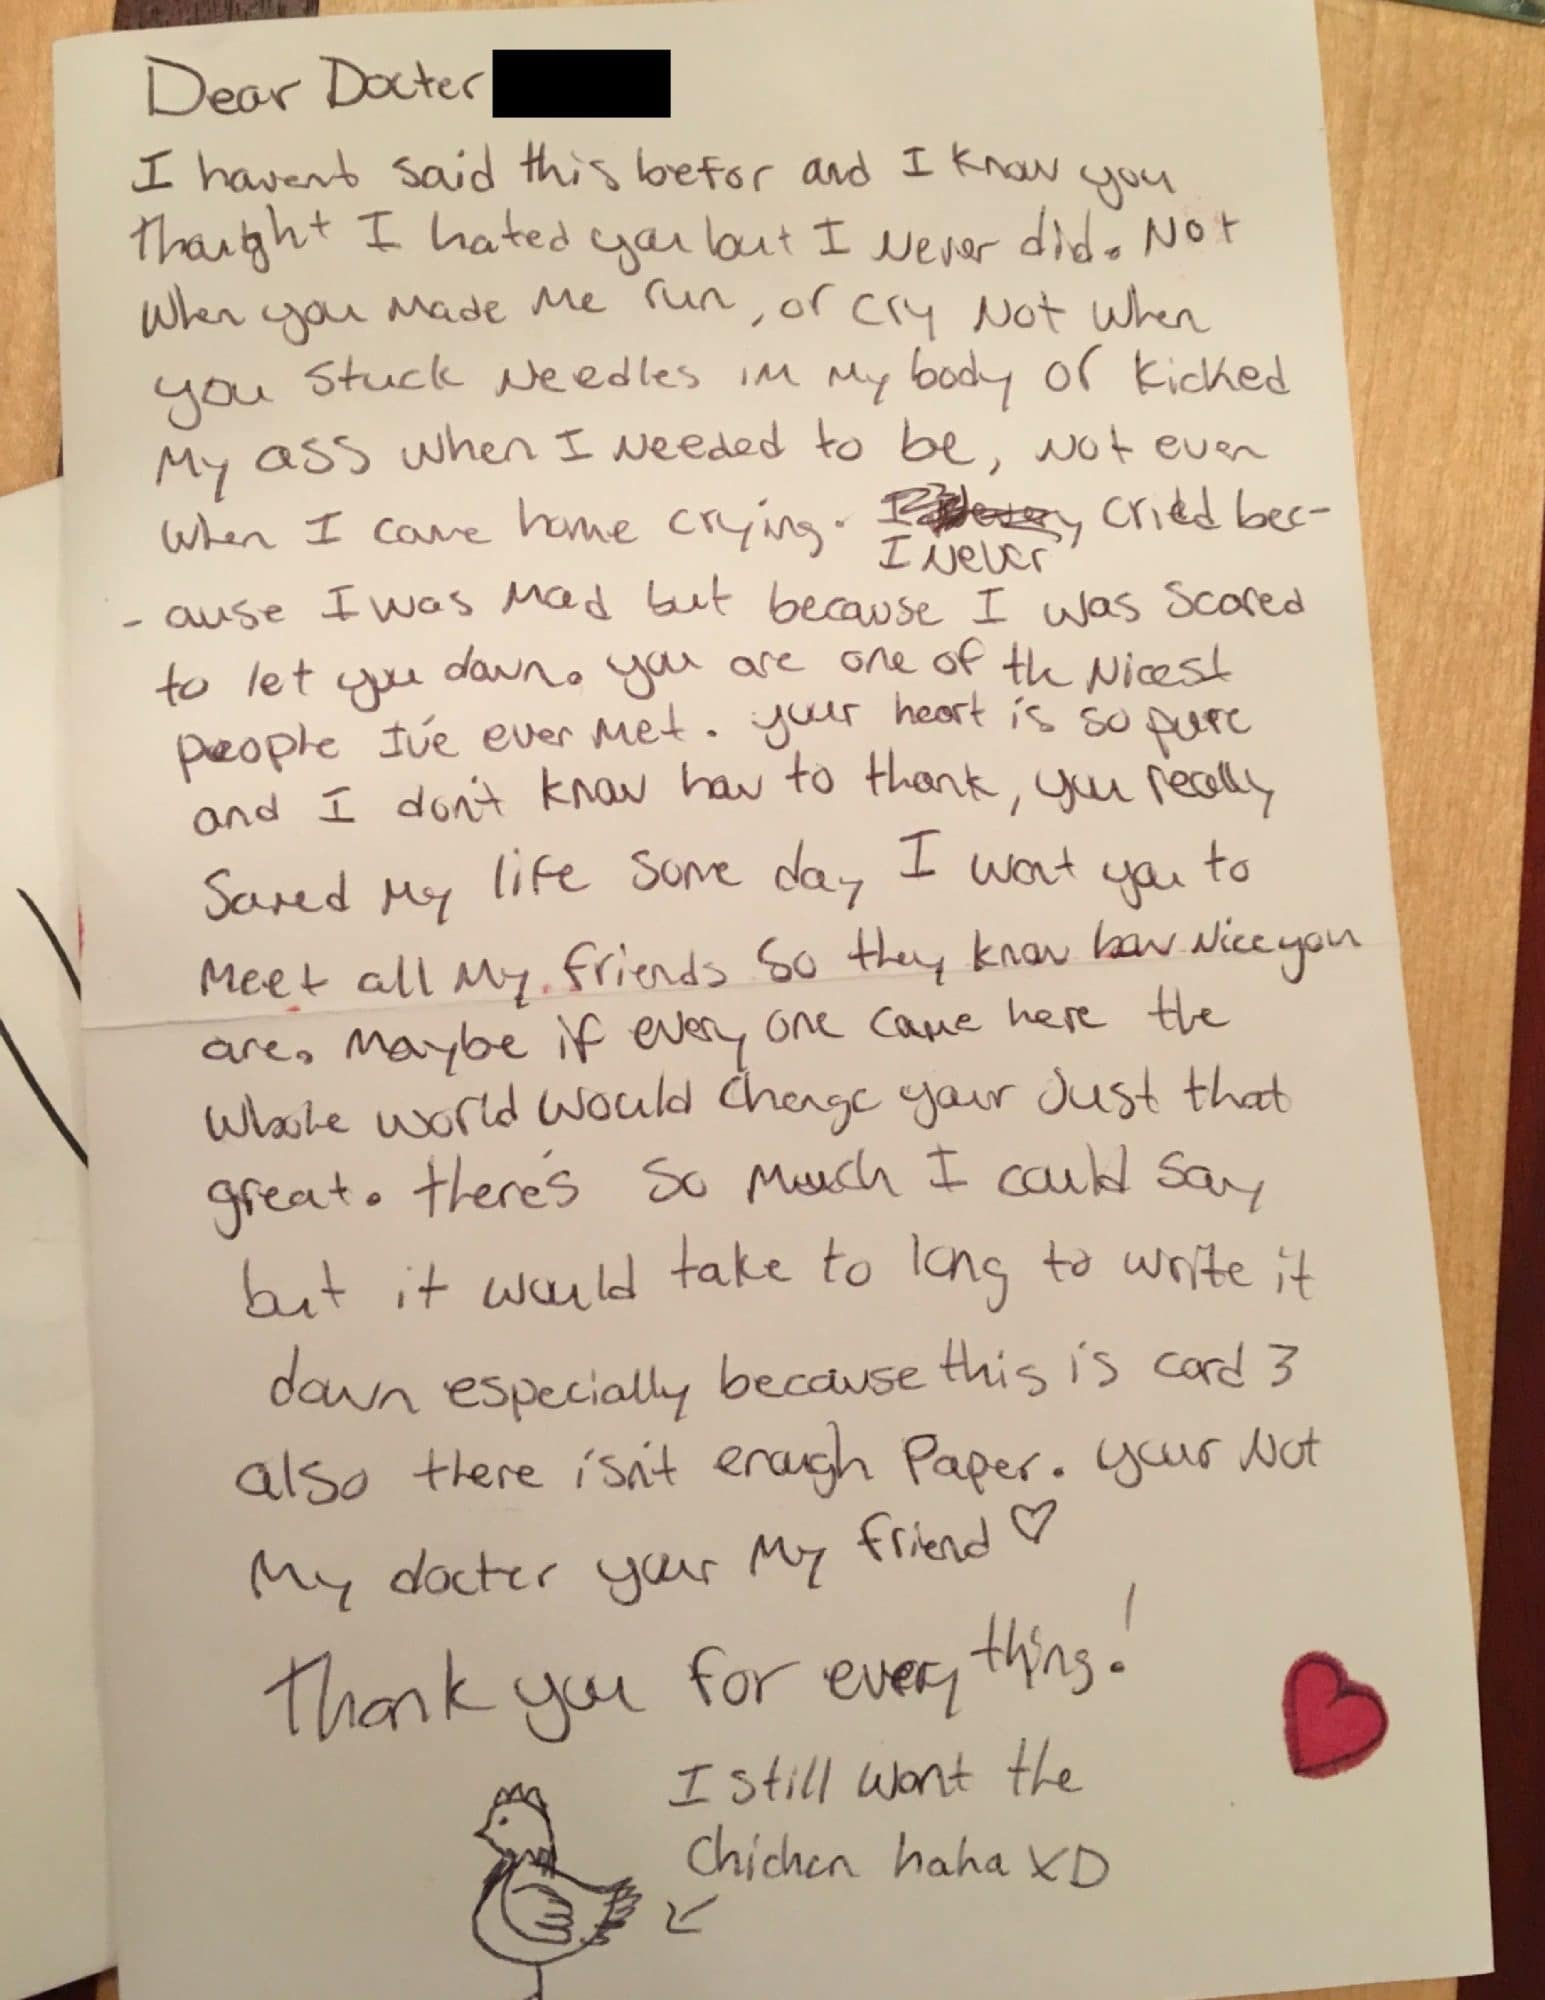 Dear Docter
I havent said this befor and I know you
thought I hated you but I never did. Not
when you made me run, or cry Not when
you stuck needles in my body or kicked
my ass when I needed to be, not even
when I came home crying. I never cried bec-
- ause I was mad but because I was scared
to let you down. you are one of the nicest
people I've ever met. your heart is so pure
and I don't know how to thank, you really
saved my life some day I want you to
meet all my friends so they know how nice you
are. maybe if every one came here the
whole world would change your just that
great. there's so much I could say
but it would take to long to write it
down especially because this is card 3
also there isn't enough paper. your not
my docter your my friend ♡
Thank you for everything!
I still want the
chicken haha XD